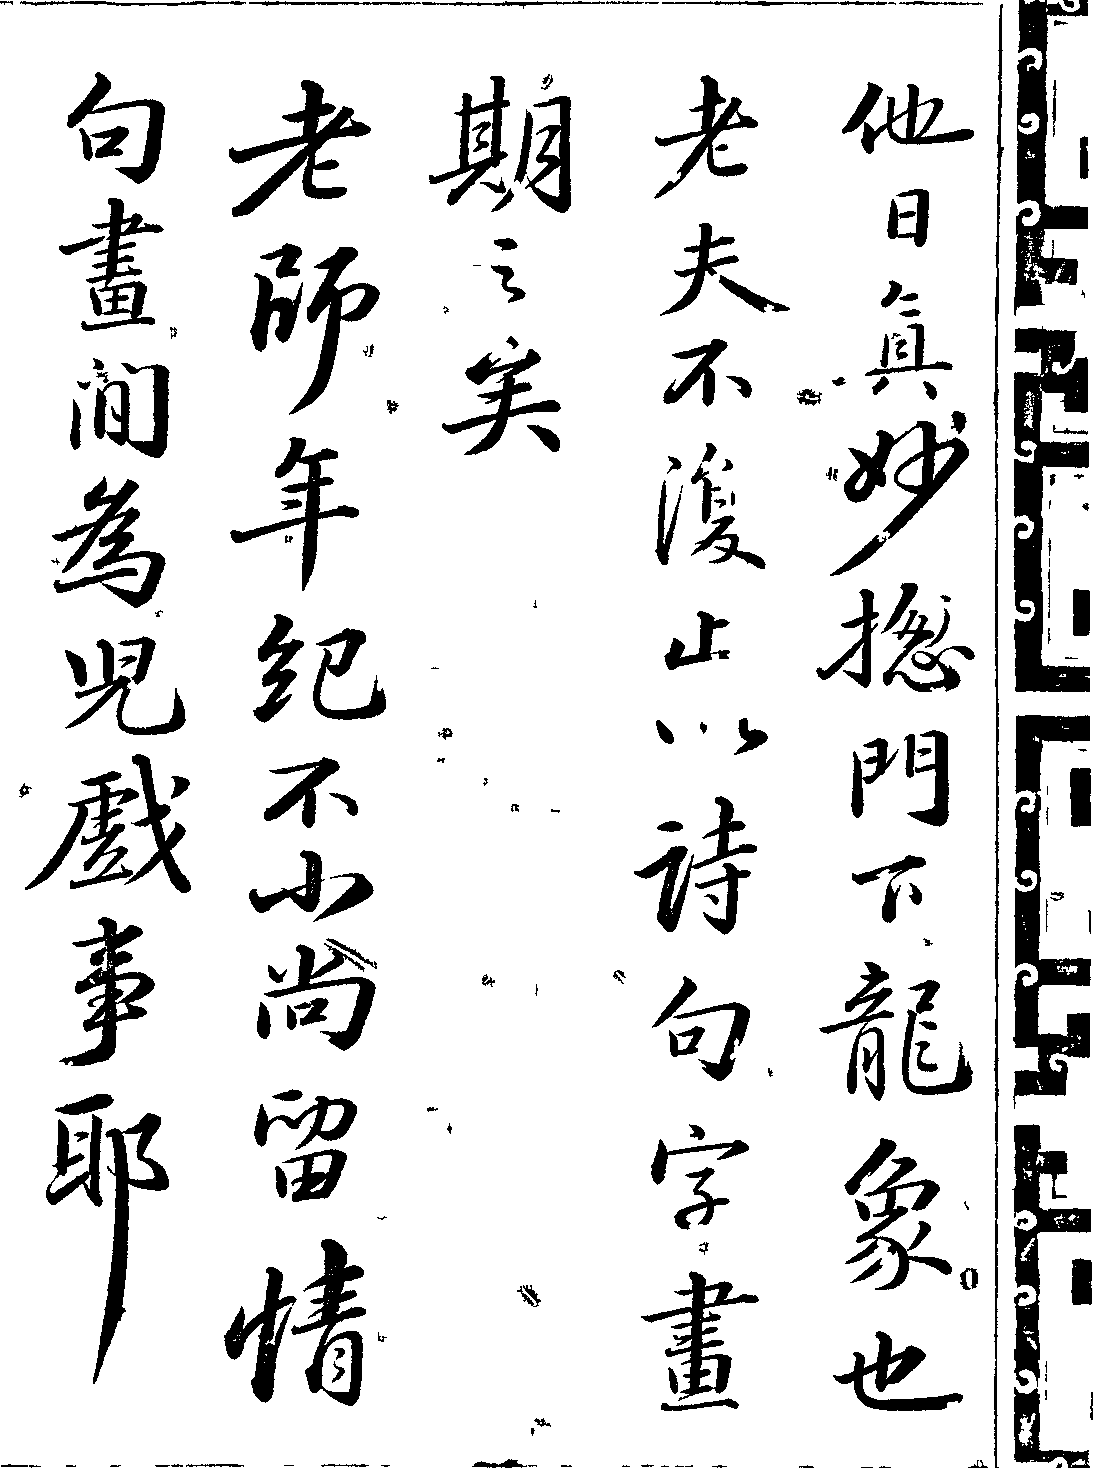 他日真妙揔門下龍象也
老夫不復止以詩句字畫
期之矣
老師年紀不小尚留情
句畫間為児戲事耶